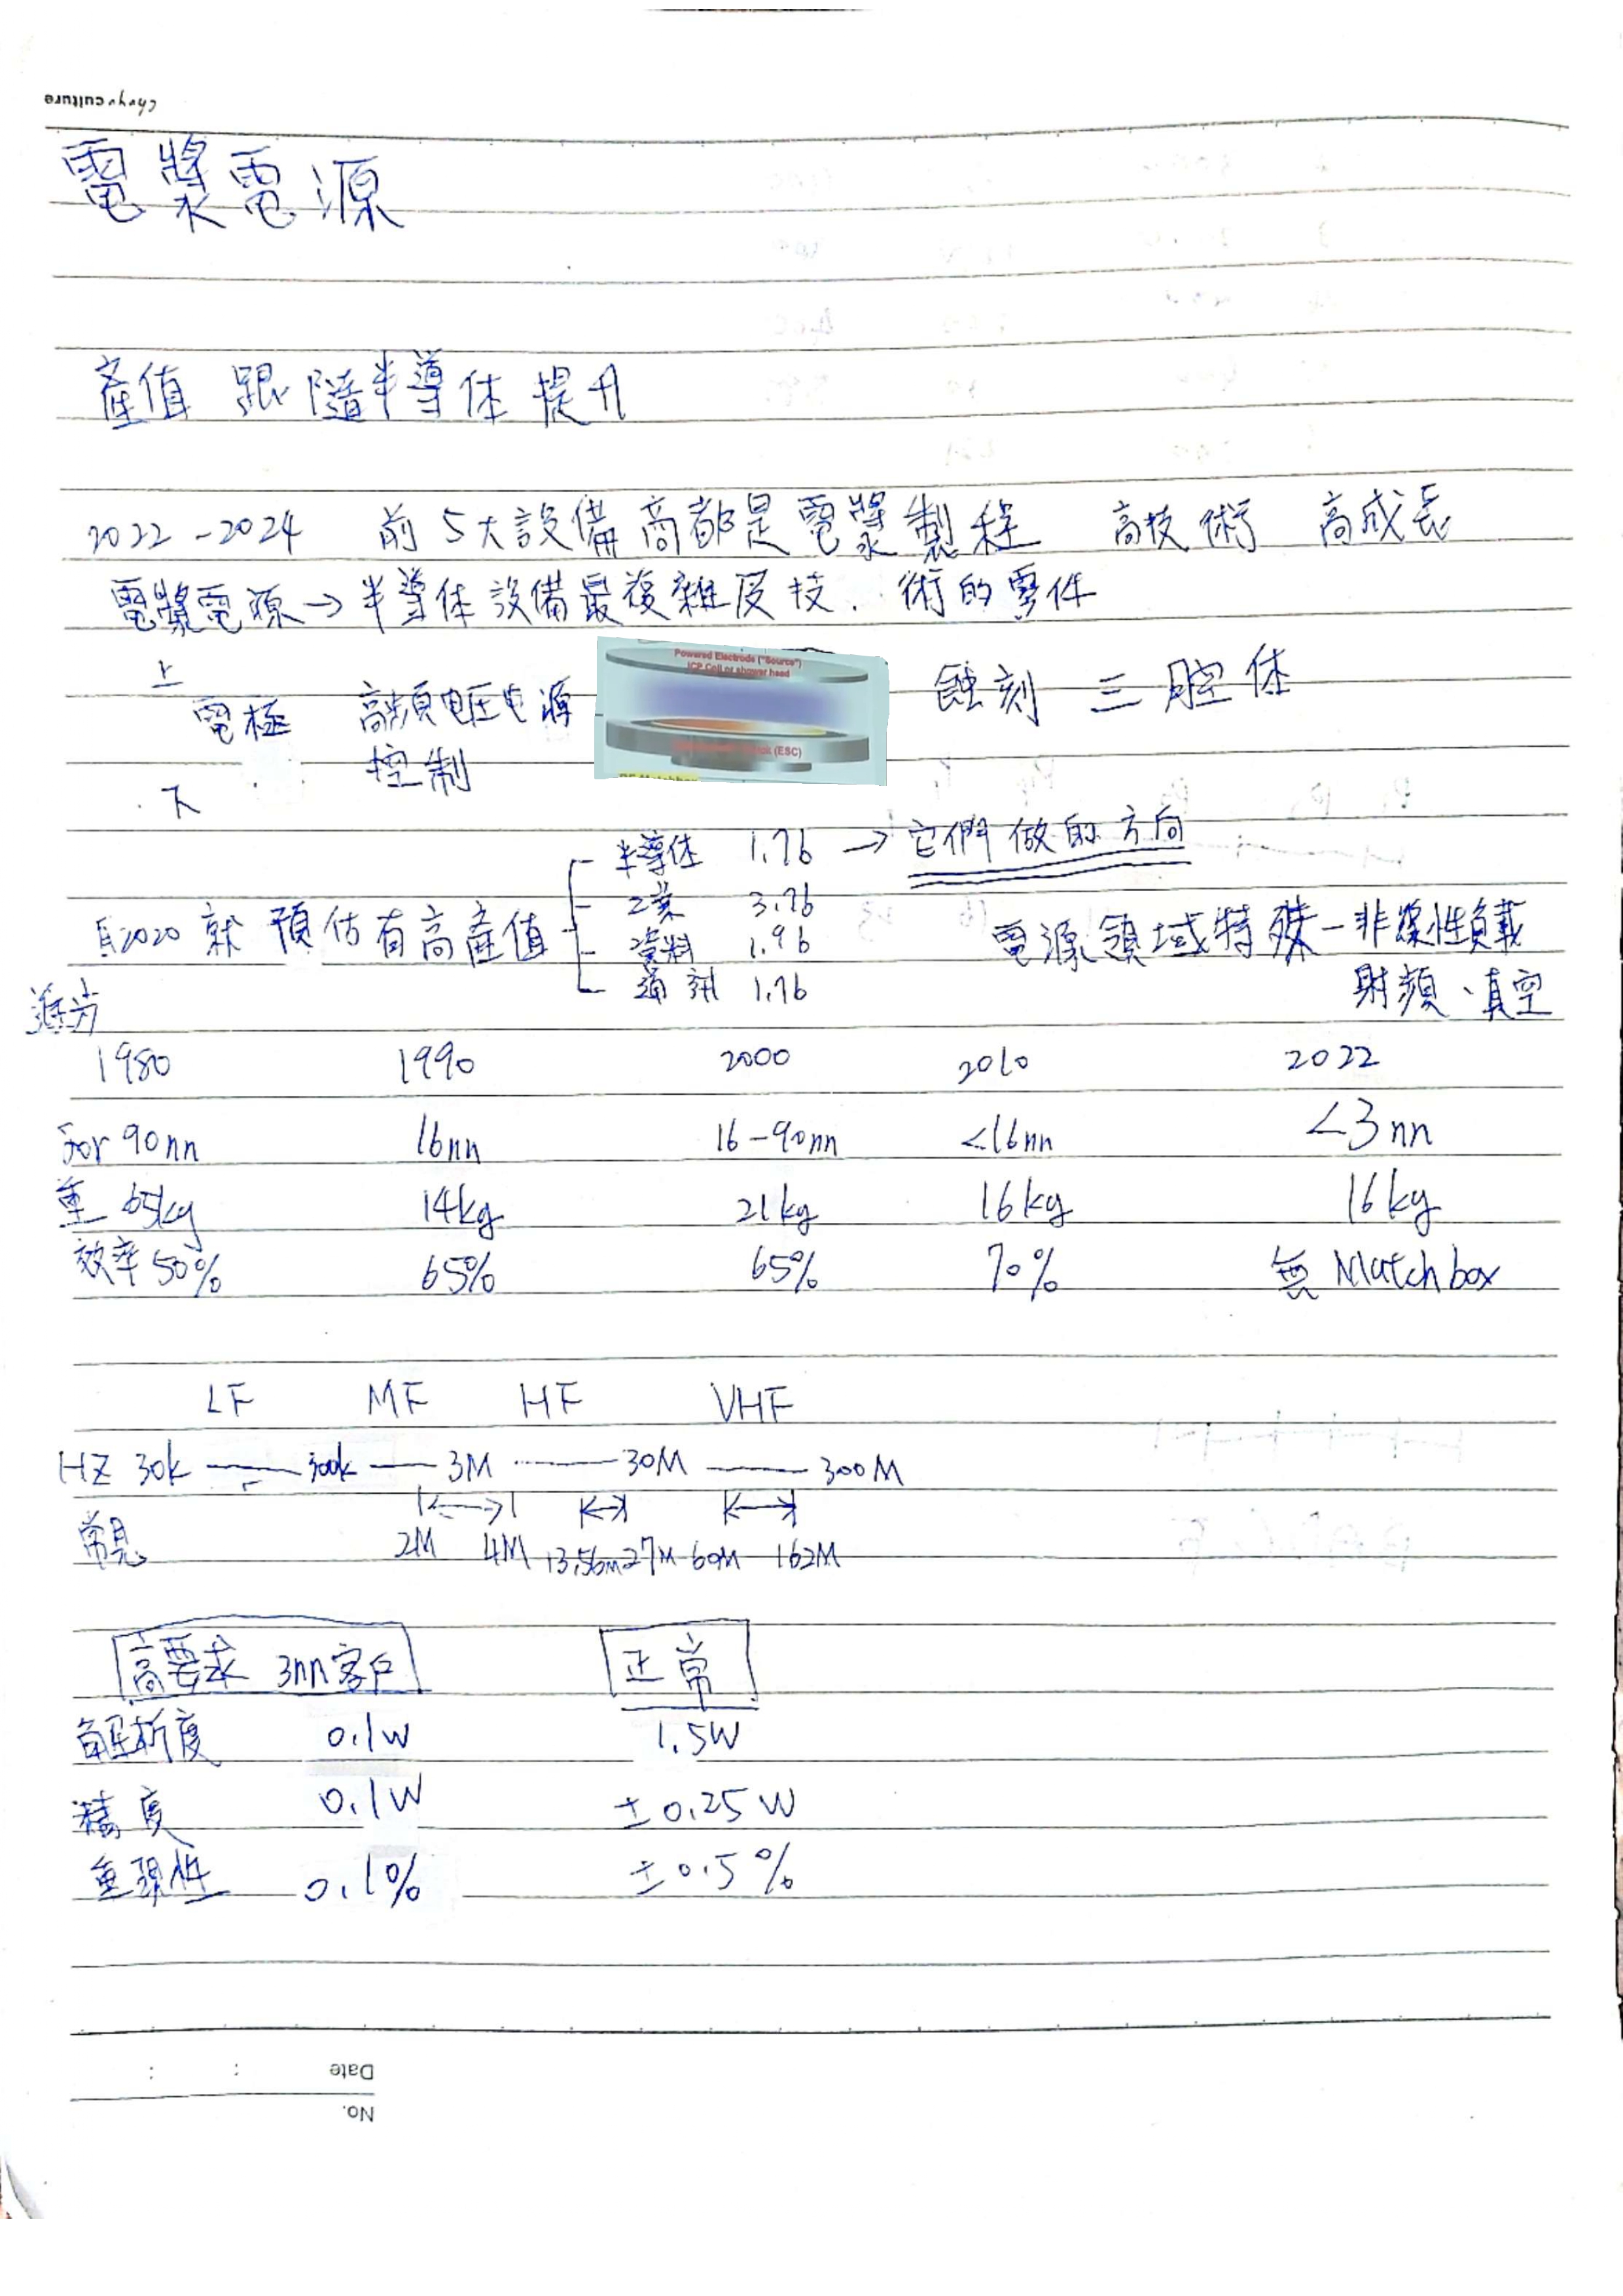 Chayo culture
電漿電源
產值 跟隨半導体提升
2022-2024 前5大設備商都是電漿製程 高技術 高成長
電漿電源→半導体設備最複雜及技術的零件
上
電極 高頻电圧电源
控制
下
Powered Electrode ("Source")
ICP Coil or shower head
(ESC)
蝕刻 三腔体
半導体 1.7b → 它們做的方向
工業 3.7b
自2020就預估有高產值
資料 1.9b
通訊 1.7b
電源領域特殊-非線性負載
射頻、真空
1980 1990 2000 2010 2022
for 90nn 16nn 16-90nn <16nn <3nn
重 65kg 14kg 21kg 16kg 16kg
效率50% 65% 65% 70% 無 Matchbox
LF MF HF VHF
HZ 30k — 300k — 3M — 30M — 300M
常見 2M 4M 13.56m 27M 60M 162M
高要求 3nn客户 正常
解析度 0.1w 1.5W
精度 0.1W ±0.25W
重現性 0.1% ±0.5%
Date : :
No.